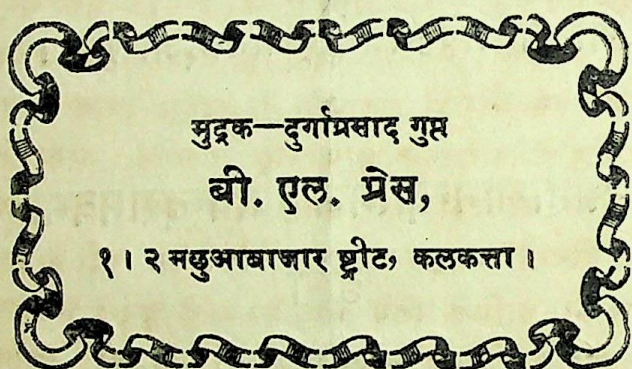 मुद्रक—दुर्गाप्रसाद गुप्त
बी. एल. प्रेस,
१। २ मछुआबाजार ष्ट्रीट, कलकत्ता।